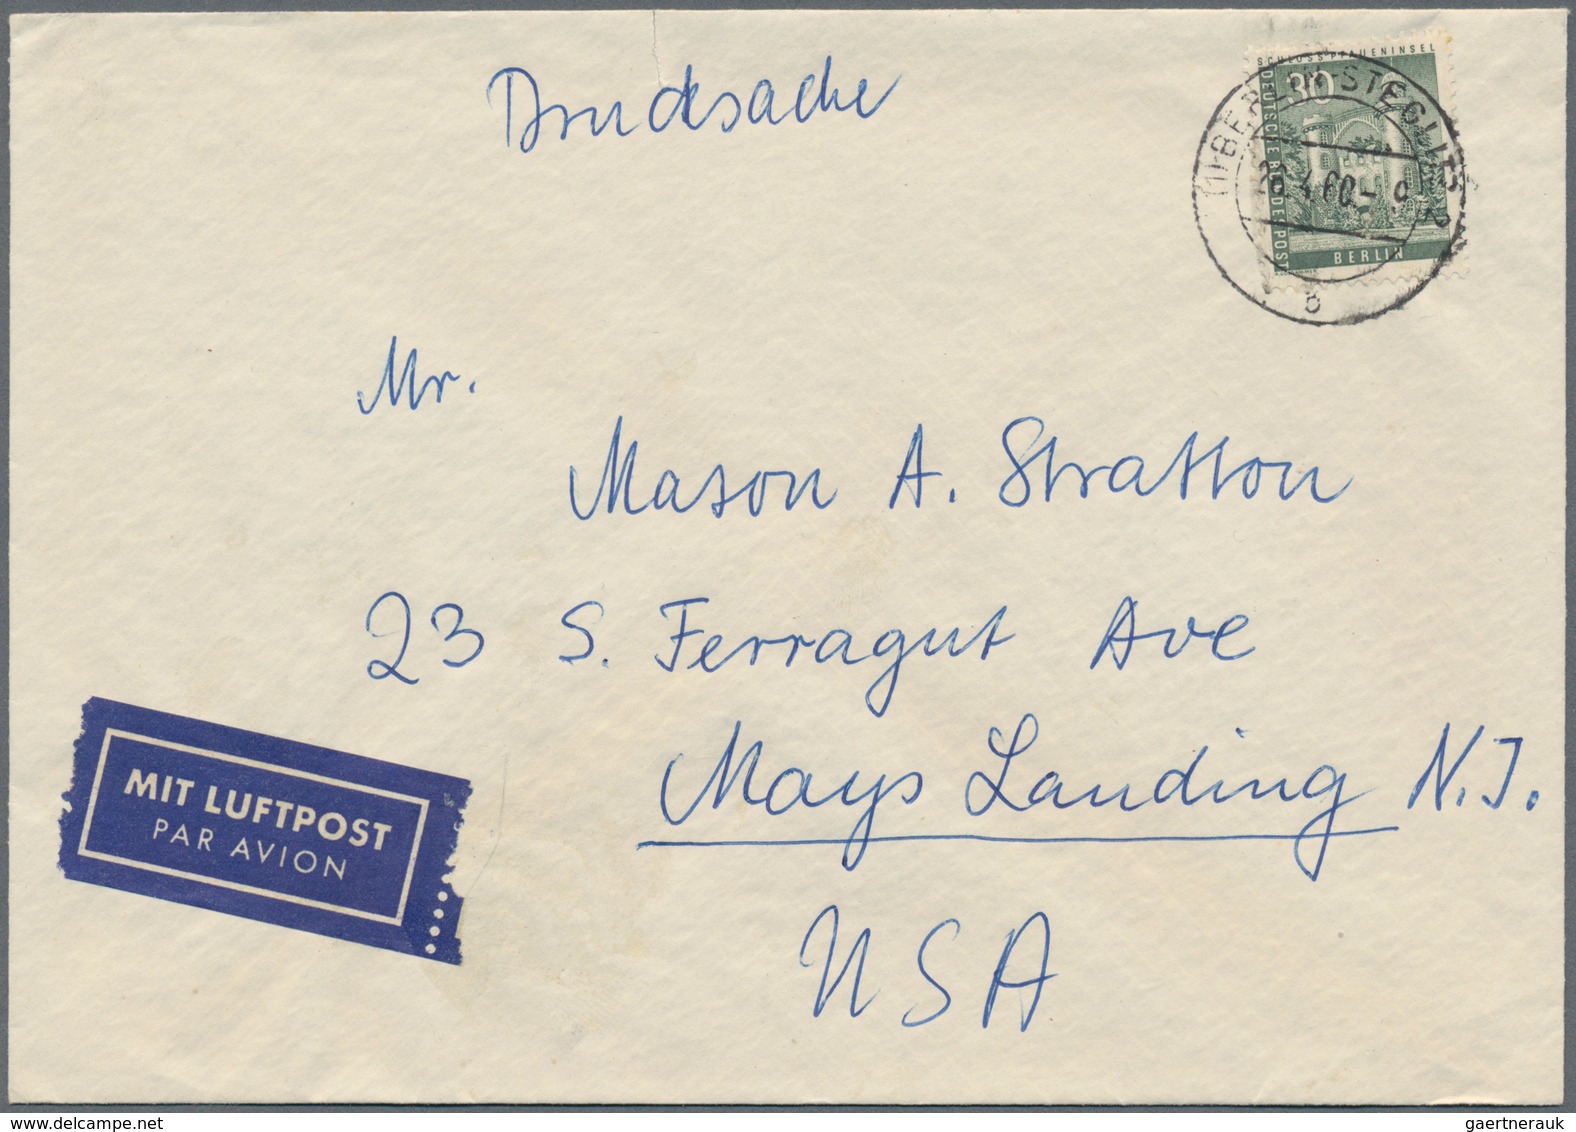 Drucksache
SCHLOSS PFAUENINSEL
30
DEUTSCHE BUNDESPOST
BERLIN
(1) BERLIN-STEGLITZ 2
26.4.60.- 9
b
Mr.
Mason A. Stratton
23 S. Ferragut Ave
Mays Landing N.J.
USA
MIT LUFTPOST
PAR AVION
gaertnerauk